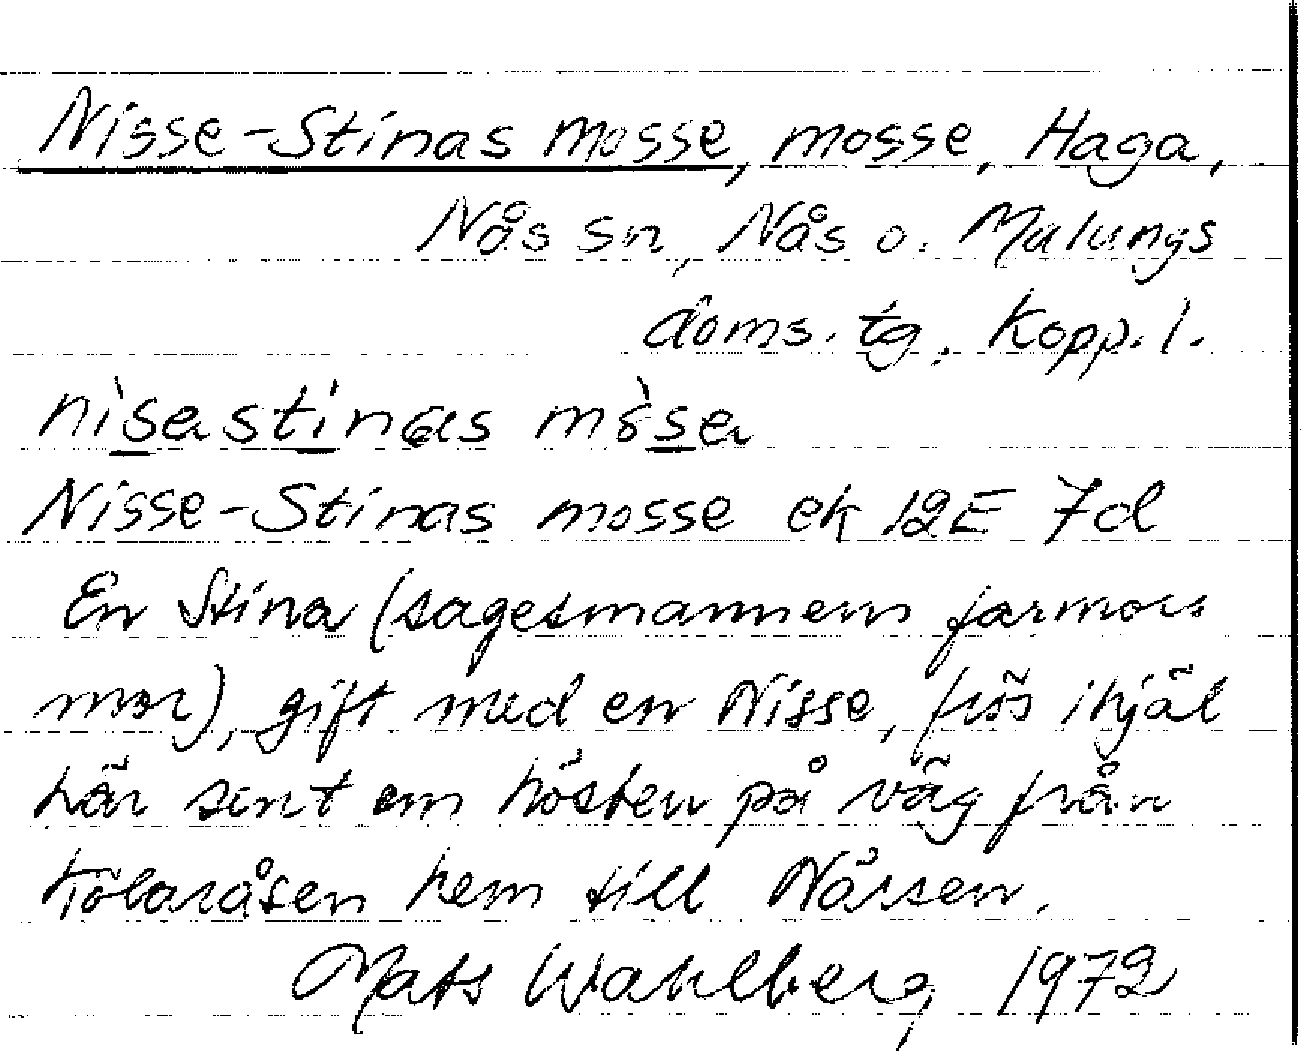 Nisse-Stinas mosse, mosse, Haga,
Nås sn, Nås o. Malungs
doms. tg, Kopp. l.
nìsastinas mòsa
Nisse-Stinas mosse ek 12E 7d
En Stina (sagesmannens farmors
mor), gift med en Nisse, frös ihjäl
här sent om hösten på väg från
Kölaråsen hem till Närsen.
Mats Wahlberg 1972